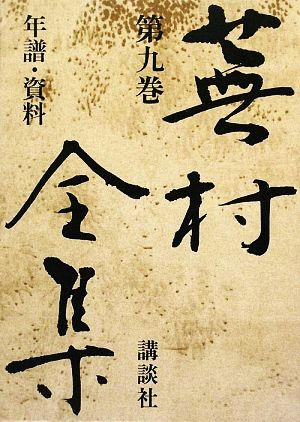 蕪村
全集
第九巻
年譜・資料
講談社